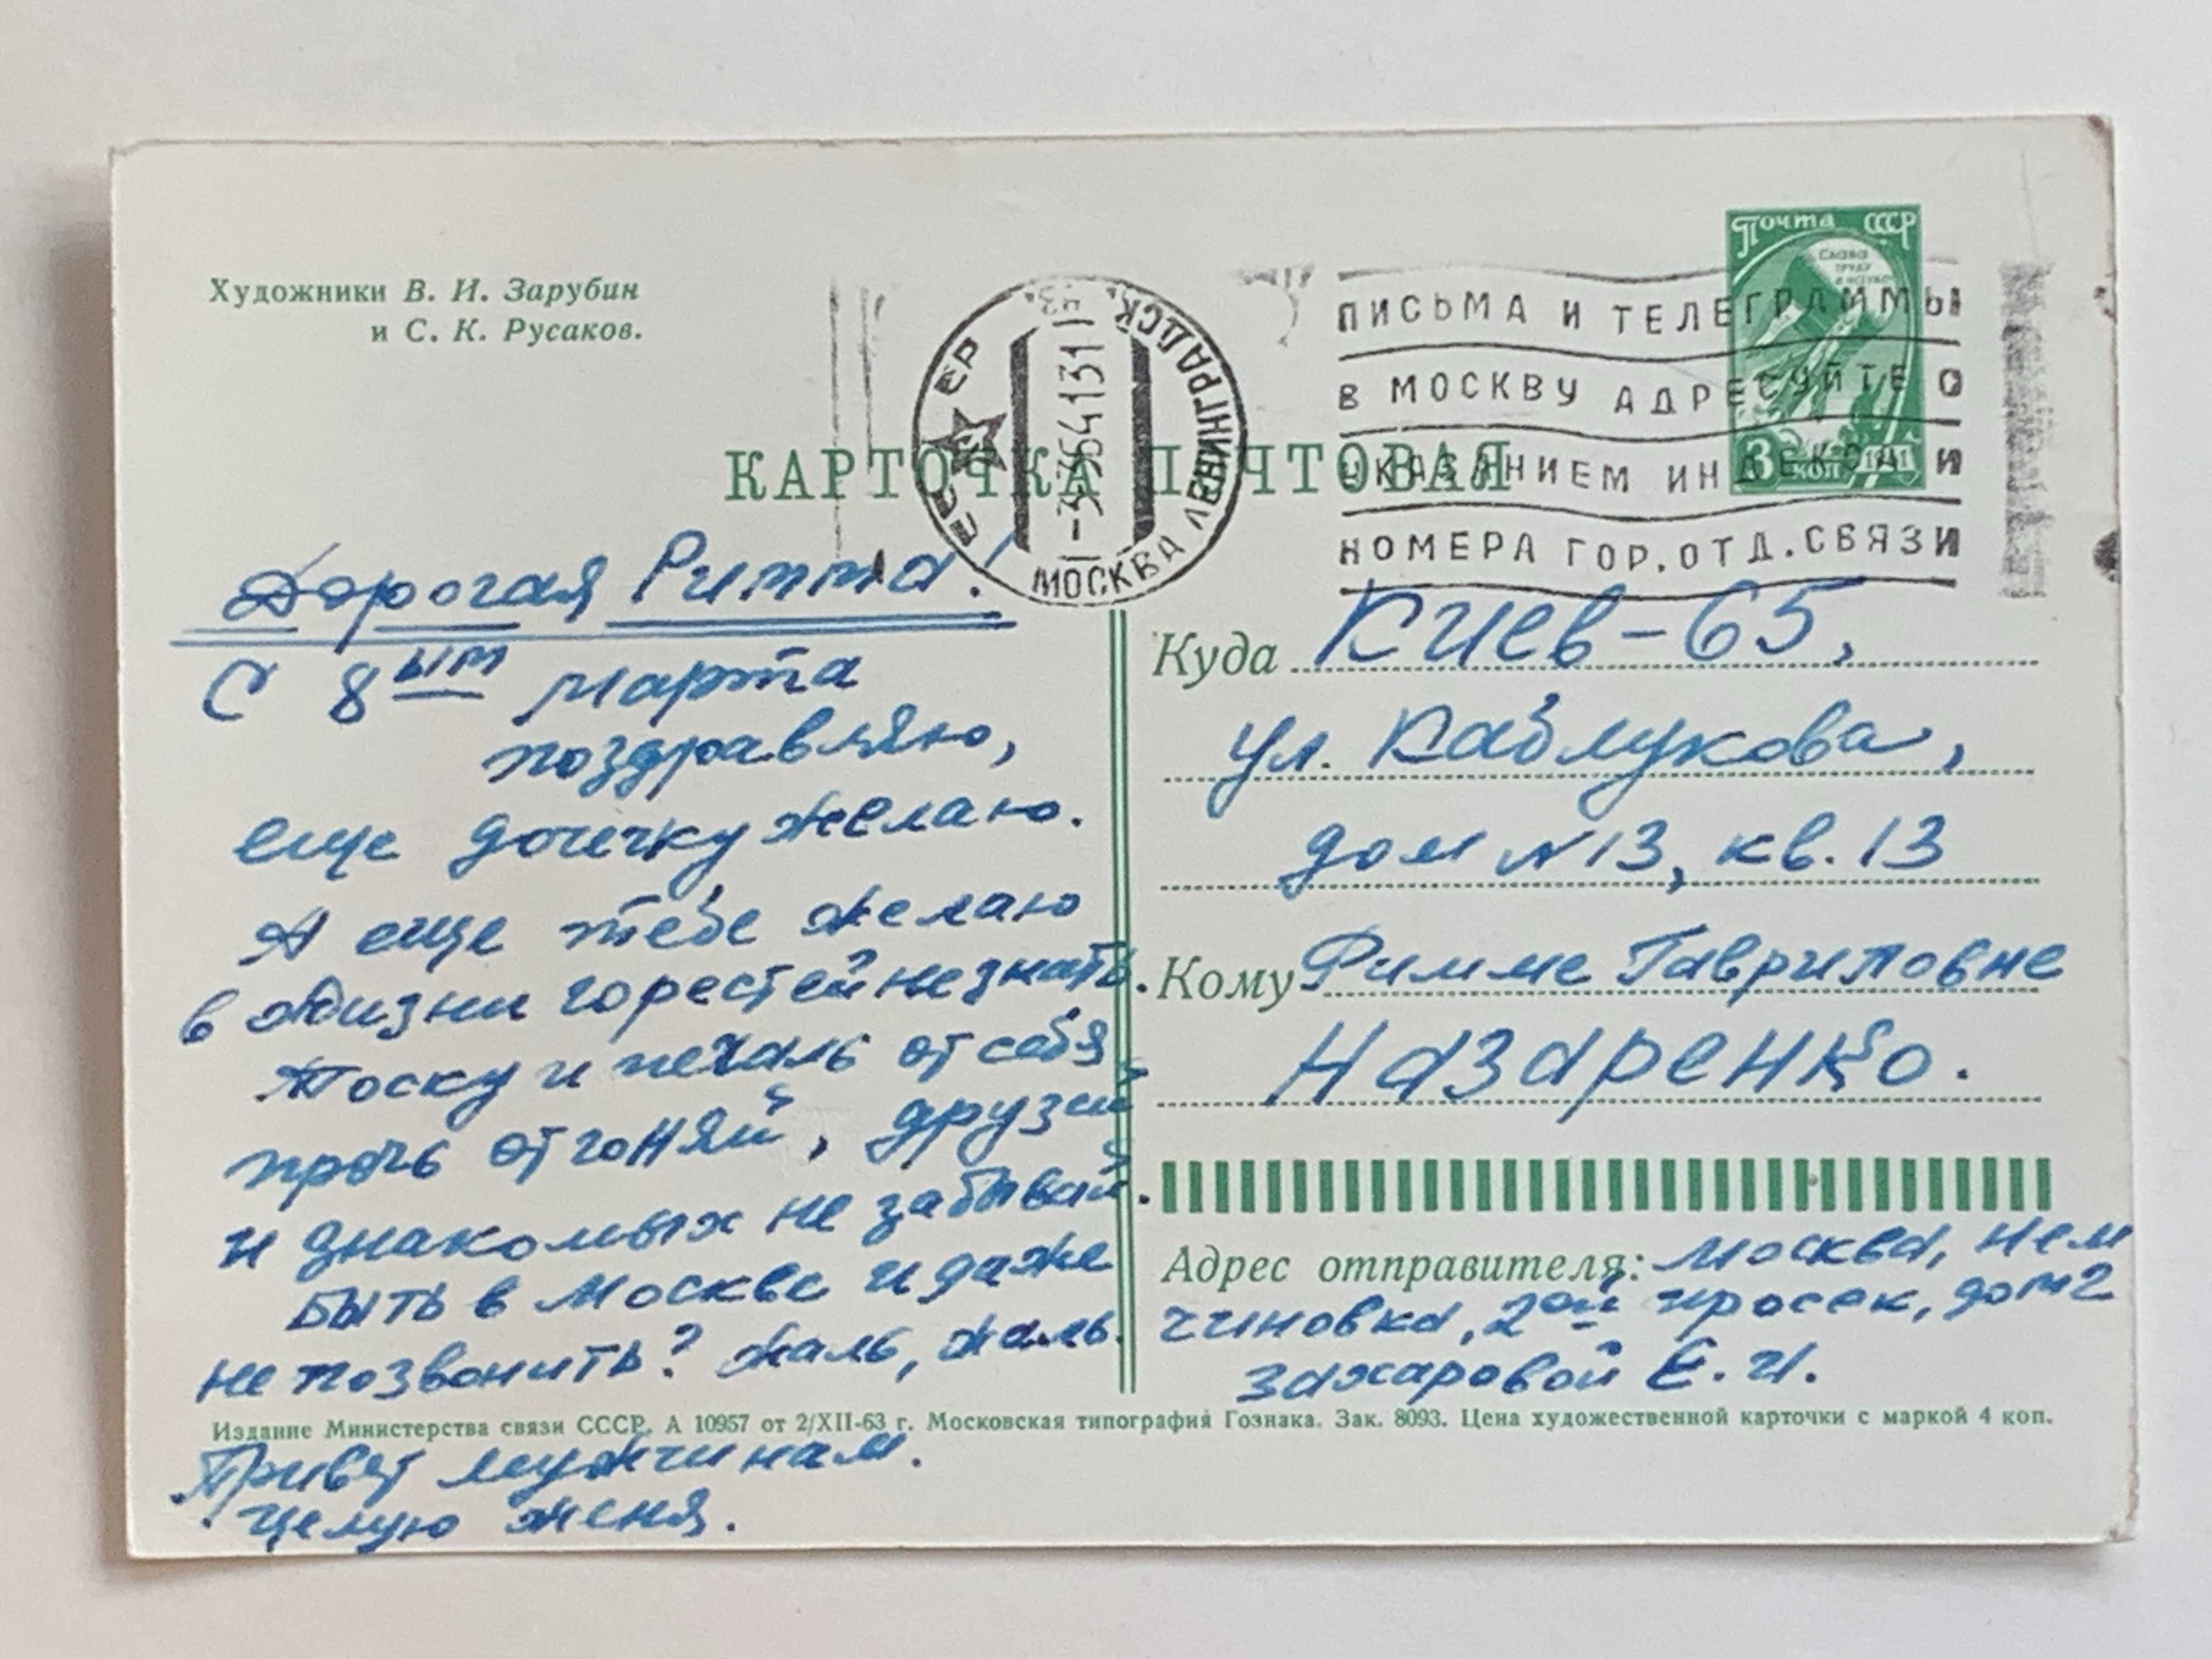 Художники В. И. Зарубин
и С. К. Русаков.
Почта СССР
Слава
труду
и науке
3 коп 1961
МОСКВА ЛЕНИНГРАДСК.
-3364131
ПИСЬМА И ТЕЛЕГРАММЫ
В МОСКВУ АДРЕСУЙТЕ С
УКАЗАНИЕМ ИНДЕКСА И
НОМЕРА ГОР.ОТД.СВЯЗИ
КАРТОЧКА ПОЧТОВАЯ
Дорогая Римма!
С 8ым марта
поздравляю,
еще дочечку желаю.
А еще тебе желаю
в жизни горестей не знать.
Тоску и печаль от себя
прочь отгоняй, друзей
и знакомых не забывай.
Быть в Москве и даже
не позвонить? Жаль, жаль.
Привет мужчинам.
Целую Женя.
Куда Киев-65,
ул. Каблукова,
дом N13, кв. 13
Кому Римме Гавриловне
Назаренко.
Адрес отправителя: Москва, Нем
чиновка, 2ой просек, дом 2
Захаровой Е. И.
Издание Министерства связи СССР. А 10957 от 2/XII-63 г. Московская типография Гознака. Зак. 8093. Цена художественной карточки с маркой 4 коп.